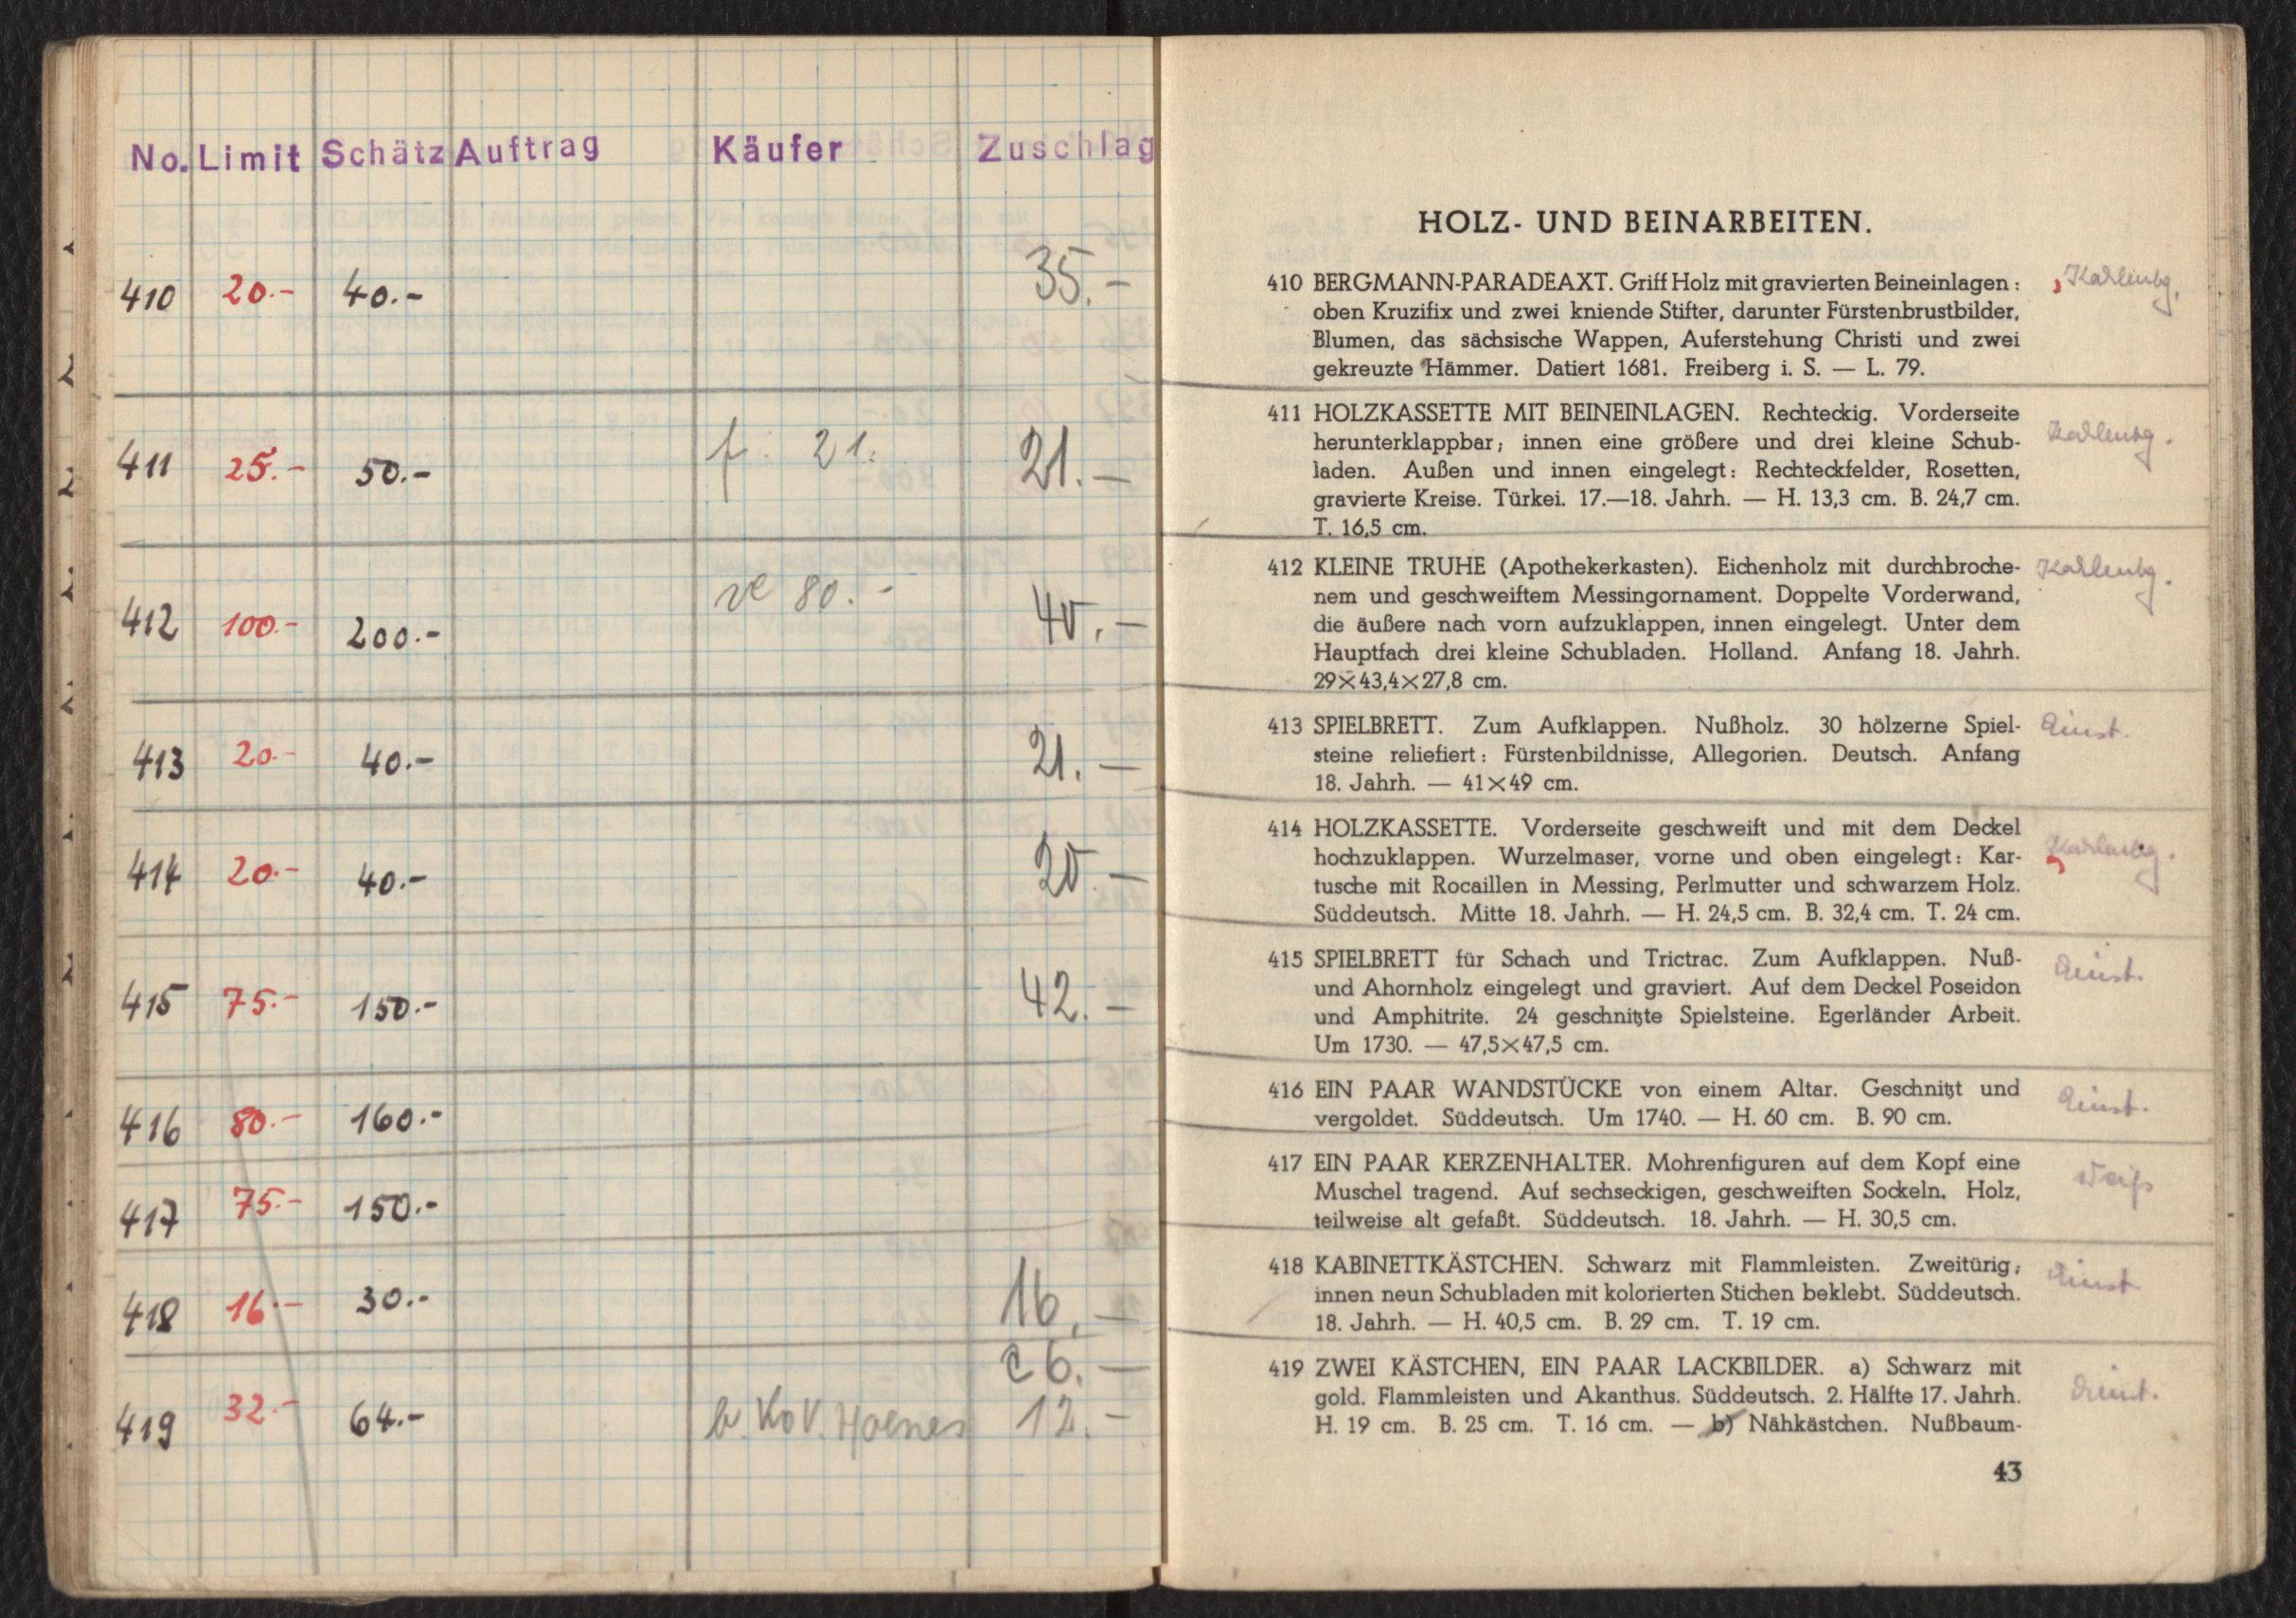 No. Limit Schätz Auftrag Käufer Zuschlag
410 20.- 40.- 35.-
411 25.- 50.- f. 21. 21.-
412 100.- 200.- 80.- 40.-
413 20.- 40.- 21.-
414 20.- 40.- 20.-
415 75.- 150.- 42.-
416 80.- 160.-
417 75.- 150.-
418 16.- 30.- 16.-
26.-
419 32.- 64.- 12.-
HOLZ- UND BEINARBEITEN.
410 BERGMANN-PARADEAXT. Griff Holz mit gravierten Beineinlagen :
oben Kruzifix und zwei kniende Stifter, darunter Fürstenbrustbilder,
Blumen, das sächsische Wappen, Auferstehung Christi und zwei
gekreuzte Hämmer. Datiert 1681. Freiberg i. S. — L. 79.
411 HOLZKASSETTE MIT BEINEINLAGEN. Rechteckig. Vorderseite
herunterklappbar; innen eine größere und drei kleine Schub-
laden. Außen und innen eingelegt: Rechteckfelder, Rosetten,
gravierte Kreise. Türkei. 17.—18. Jahrh. — H. 13,3 cm. B. 24,7 cm.
T. 16,5 cm.
412 KLEINE TRUHE (Apothekerkasten). Eichenholz mit durchbroche-
nem und geschweiftem Messingornament. Doppelte Vorderwand,
die äußere nach vorn aufzuklappen, innen eingelegt. Unter dem
Hauptfach drei kleine Schubladen. Holland. Anfang 18. Jahrh.
29×43,4×27,8 cm.
413 SPIELBRETT. Zum Aufklappen. Nußholz. 30 hölzerne Spiel-
steine reliefiert: Fürstenbildnisse, Allegorien. Deutsch. Anfang
18. Jahrh. — 41×49 cm.
414 HOLZKASSETTE. Vorderseite geschweift und mit dem Deckel
hochzuklappen. Wurzelmaser, vorne und oben eingelegt: Kar-
tusche mit Rocaillen in Messing, Perlmutter und schwarzem Holz.
Süddeutsch. Mitte 18. Jahrh. — H. 24,5 cm. B. 32,4 cm. T. 24 cm.
415 SPIELBRETT für Schach und Trictrac. Zum Aufklappen. Nuß-
und Ahornholz eingelegt und graviert. Auf dem Deckel Poseidon
und Amphitrite. 24 geschnitzte Spielsteine. Egerländer Arbeit.
Um 1730. — 47,5×47,5 cm.
416 EIN PAAR WANDSTÜCKE von einem Altar. Geschnitzt und
vergoldet. Süddeutsch. Um 1740. — H. 60 cm. B. 90 cm.
417 EIN PAAR KERZENHALTER. Mohrenfiguren auf dem Kopf eine
Muschel tragend. Auf sechseckigen, geschweiften Sockeln. Holz,
teilweise alt gefaßt. Süddeutsch. 18. Jahrh. — H. 30,5 cm.
418 KABINETTKÄSTCHEN. Schwarz mit Flammleisten. Zweitürig;
innen neun Schubladen mit kolorierten Stichen beklebt. Süddeutsch.
18. Jahrh. — H. 40,5 cm. B. 29 cm. T. 19 cm.
419 ZWEI KÄSTCHEN, EIN PAAR LACKBILDER. a) Schwarz mit
gold. Flammleisten und Akanthus. Süddeutsch. 2. Hälfte 17. Jahrh.
H. 19 cm. B. 25 cm. T. 16 cm. — b) Nähkästchen. Nußbaum-
43